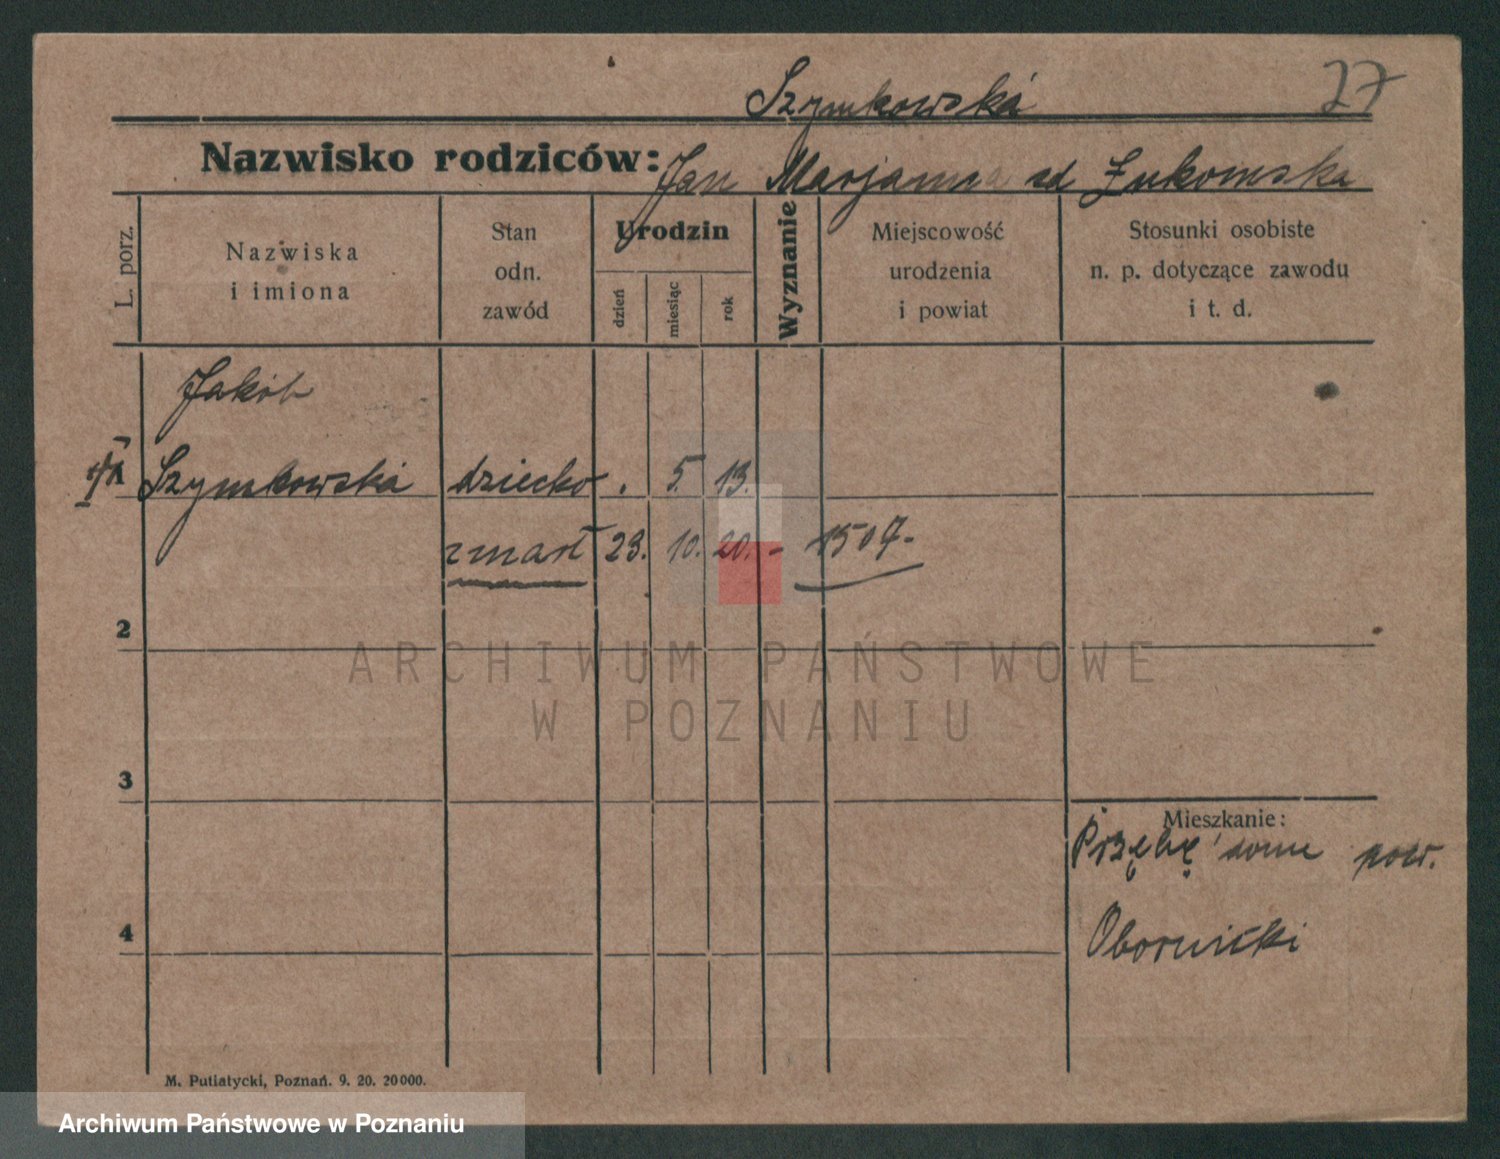 Szymkowská 27
Nazwisko rodziców: Jan Marjanna zd Żukowska
L. porz.
Nazwiska
i imiona
Stan
odn.
zawód
Urodzin
dzień
miesiąc
rok
Wyznanie
Miejscowość
urodzenia
i powiat
Stosunki osobiste
n. p. dotyczące zawodu
i t. d.
Jakób
Szymkowská dziecko . 5. 13.
zmarł 23. 10. 20. - 1507.-
2
ARCHIWUM PAŃSTWOWE
W POZNANIU
3
Mieszkanie:
pow.
Obornicki
4
M. Putiatycki, Poznań. 9. 20. 20000.
Archiwum Państwowe w Poznaniu